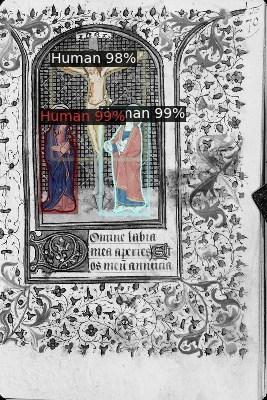 Human 98%
Human 99%
man 99%
Domine labia
mea aperies Et
os meū annūcia